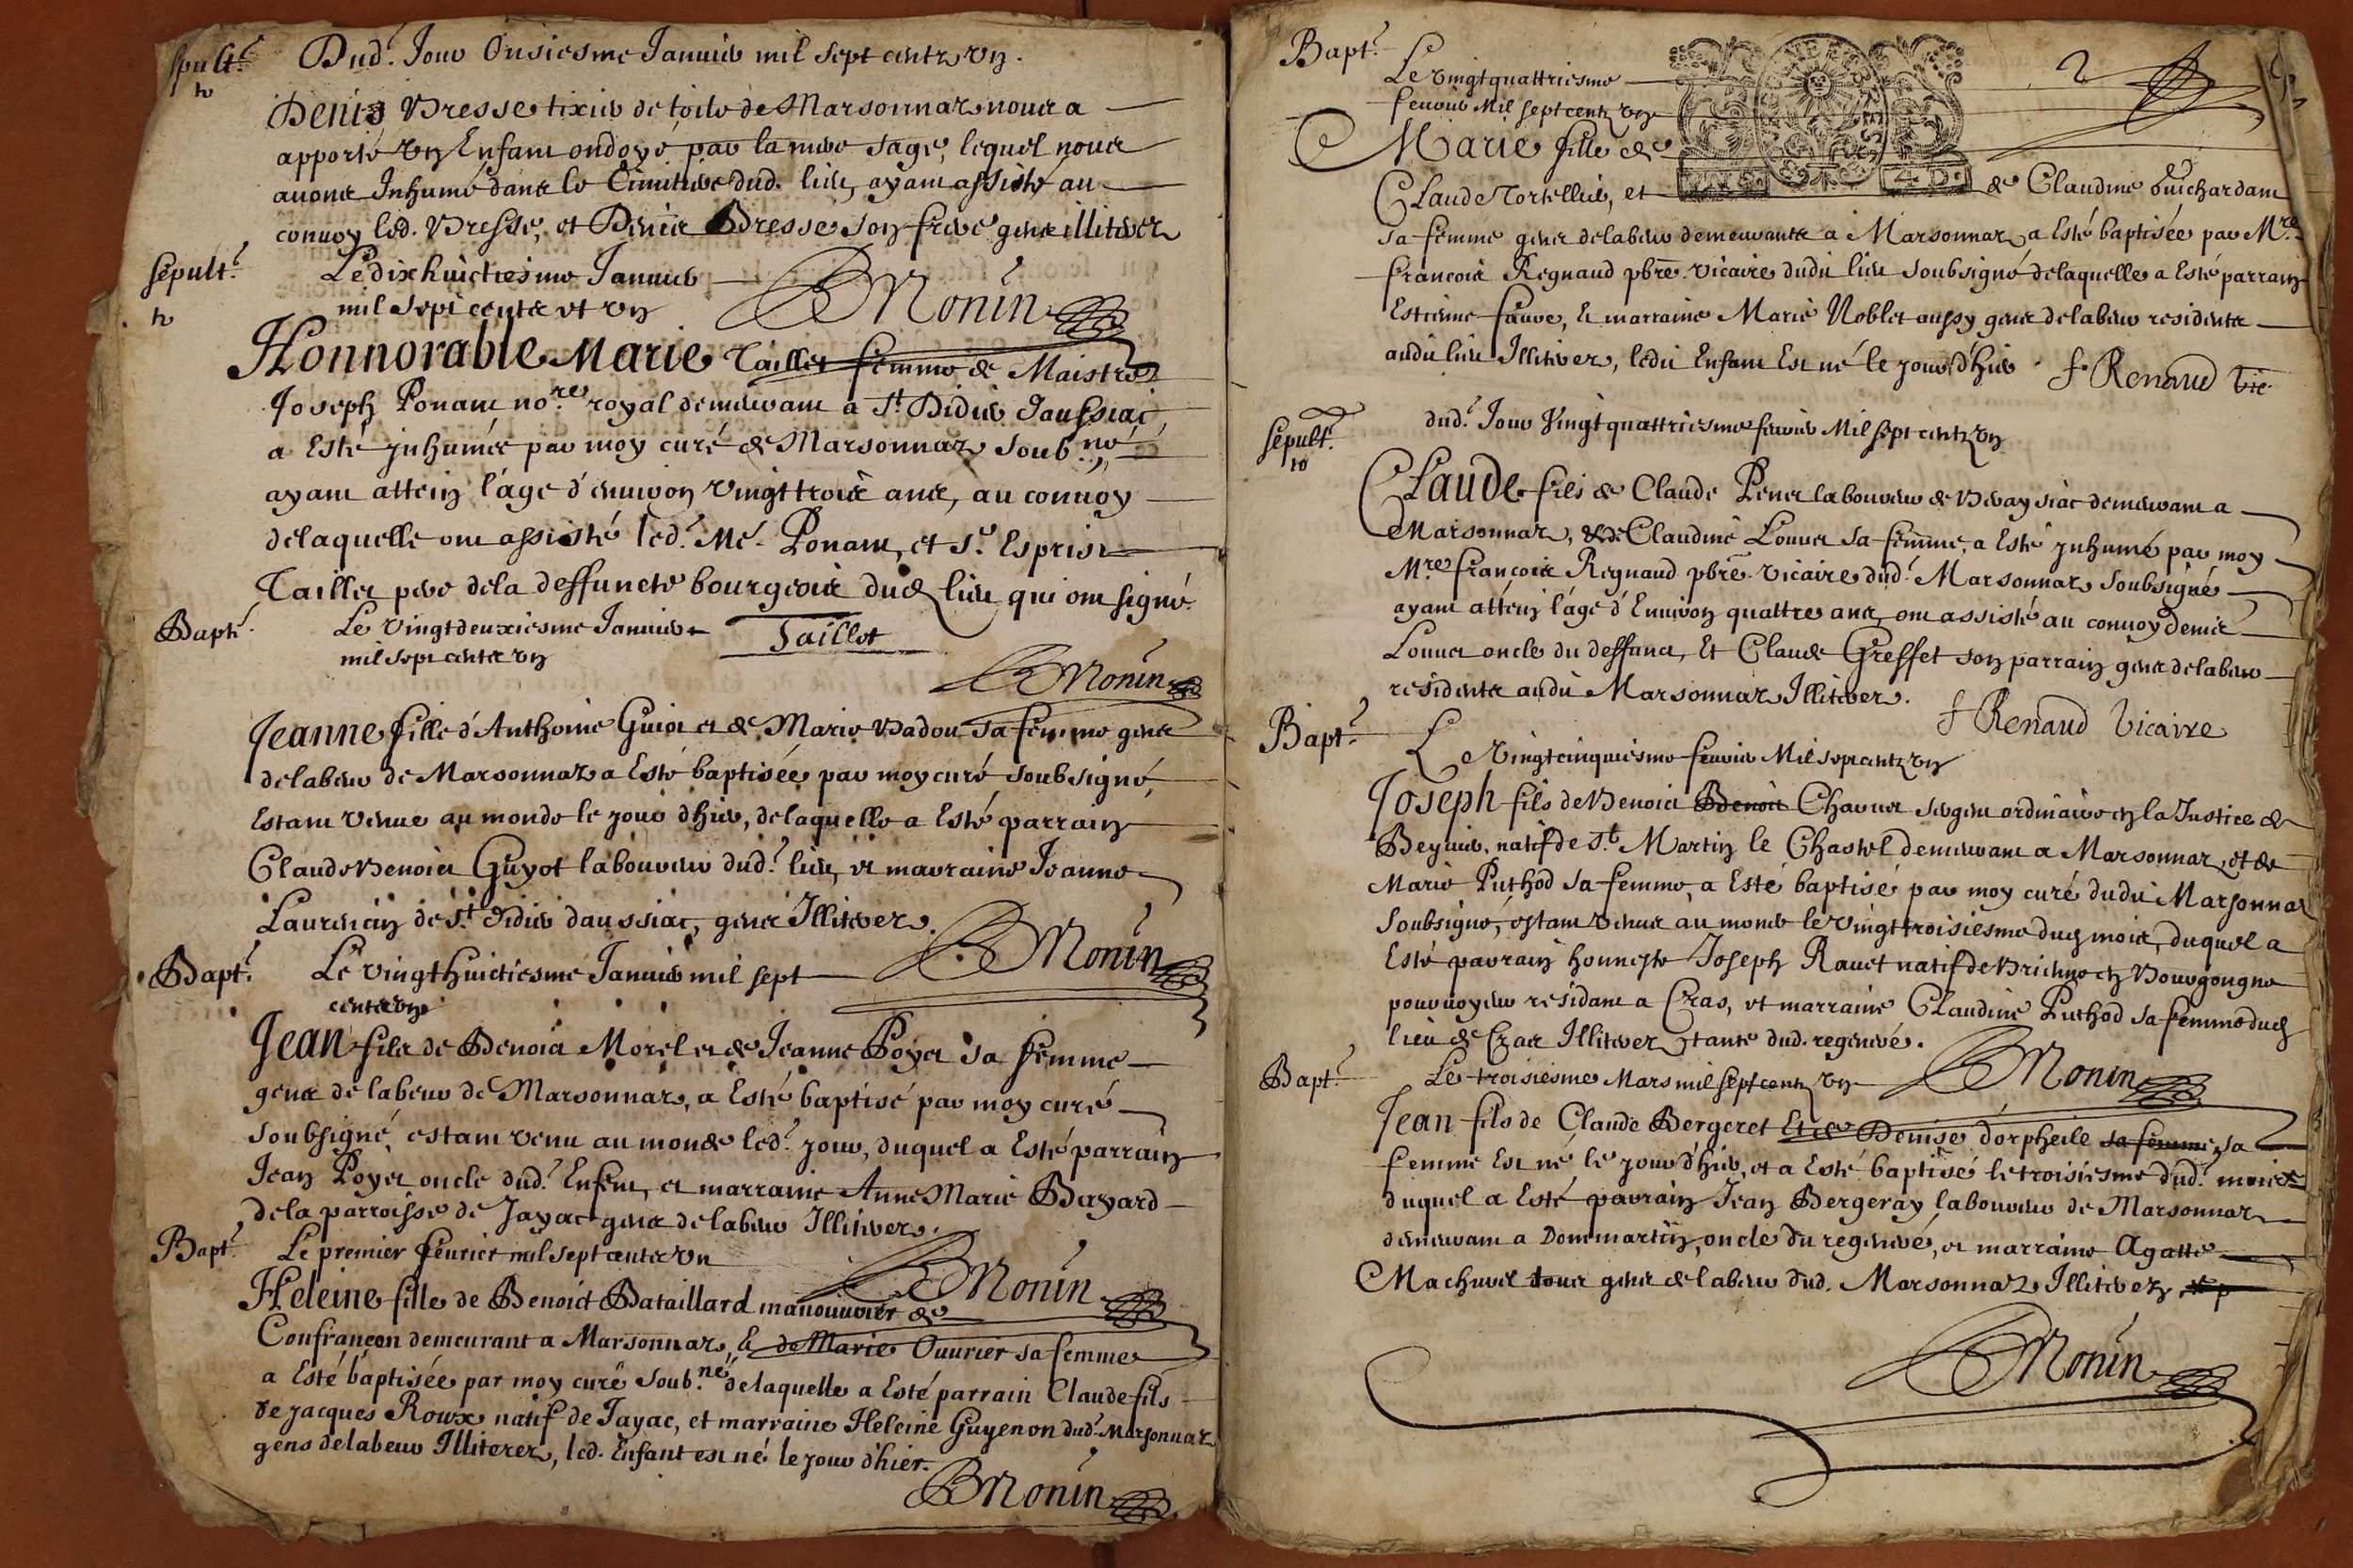 Sepult.e Dud.t Jour Onziesme Januier mil sept centz vn.
Denis Bresse tixier de toile de Marsonnaz nous a
apporté vn Enfant ondoyé par la mere sage, lequel nous
auons Inhumé dans le Cimitiere dud. lieu, ayant assisté au
conuoy led. Bresse, et Denis Bresse son frere gens illiterez
Sepult.e Le dix huictiesme Januier
mil sept cents et vn
BMonin
Honnorable Marie Taillet femme de Maistre
Joseph Ponant no.re royal demeurant a St. Didier d'aussiac
a Esté jnhumée par moy curé de Marsonnaz soub.né
ayant attein l'âge d'enuiron vingt trois ans, au conuoy
delaquelle ont assisté led.t Me. Ponant, et Sr. Esprit
Taillet pere dela deffuncte bourgeois dud lieu qui ont signé.
Bapt. Le vingtdeuxiesme Januier
mil sept cents vn
Taillet
BMonin
Jeanne fille d'Anthoine Guiot et de Marie Badou sa femme gens
delabeur de Marsonnaz a Esté baptisée par moy curé soubsigné,
Estant venue au monde le jour d'hier, delaquelle a Esté parrain
Claude Benoict Guyot laboureur dud.t lieu, et marraine Jeanne
Laurencin de St. Didier daussiac, gens Illiterez.
BMonin
Bapt.e Le vingthuictiesme Januier mil sept
cents vn
Jean fils de Benoict Morel et de Jeanne Poyet sa femme
gens de labeur de Marsonnaz, a Esté baptisé par moy curé
soubsigné, estant venu au monde led.t jour, duquel a Esté parrain
Jean Poyet oncle dud.t Enfant, et marraine Anne Marie Buyard
dela parroisse de Jayac gens delabeur Illiterez.
Bapt.e Le premier feurier mil sept cents vn
BMonin
Heleine fille de Benoict Bataillard manouurier de
Confrançon demeurant a Marsonnaz, & de Marie Ouurier sa femme
a Esté baptisée par moy curé soub.né delaquelle a Esté parrain Claude fils
de Jacques Roux natif de Jayac, et marraine Heleine Guyenon dud.t Marsonnaz
gens delabeur Illiterez, led. Enfant est né le jour d'hier.
BMonin
Bapt.e Le vingtquattriesme
feurier Mil sept centz vn
2
Marie fille de
Claude Tortellier, et de Claudine Guichardant
sa femme gens delabeur demeurants a Marsonnaz a Esté baptisée par Mre
francois Regnaud pbre. vicaire dudit lieu soubsigné delaquelle a Esté parrain
Estienne faure, & marraine Marie Noblet aussy gens delabeur residents
audit lieu Illiterez, ledit Enfant Est né le jour d'hier. f. Renaud vic
Sepult.e dud.t Jour vingtquattriesme feurier Mil sept centz vn
Claude fils de Claude Penet laboureur de demeurant a
Marsonnaz, & de Claudine Louuet sa femme, a Esté jnhumé par moy
Mre. francois Regnaud pbre. vicaire dud.t Marsonnaz soubsigné
ayant attein l'âge d'Enuiron quattre ans, ont assisté au conuoy denis
Louuet oncle du deffunct, Et Claude Greffet son parrain gens delabeur
residents audit Marsonnaz Illiterez.
f Renaud Vicaire
Bapt.e Le vingtcinquiesme feurier Mil sept centz vn
Joseph fils de Benoict Benoict Charnet sergent ordinaire en la Justice de
natif de St. Martin le Chastel demeurant a Marsonnaz, et de
Marie Puthod sa femme, a Esté baptisé par moy curé dudit Marsonnaz
soubsigné, estant venus au monde le vingttroisiesme dud mois, duquel a
Esté parrain honneste Joseph Rauet natif de en Bourgougne
pouruoyeur residant a Cras, et marraine Claudine Puthod sa femme dud
lieu de Cras Illiterez, tante dud. regeneré.
Bapt.e Le troisiesme Mars mil sept centz vn
BMonin
Jean fils de Claude Bergeret Et de Denise dorpheile sa femme, sa
femme Est né le jour d'hier, et a Esté baptisé le troisiesme dud.t mois
duquel a Esté parrain Jean Bergeray laboureur de Marsonnaz
demeurant a Dommartin, oncle du regeneré, et marraine Agatte
Machurel tous gens de labeur dud. Marsonnaz Illiterez
BMonin